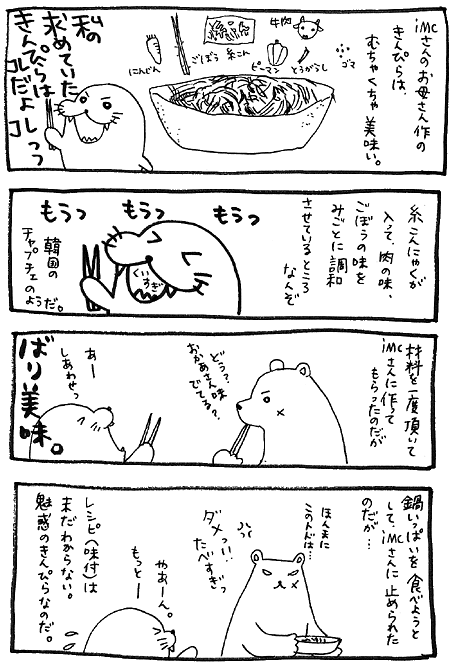 iMCさんのお母さん作の
きんぴらは、
むちゃくちゃ美味い。
牛肉
ゴマ
とうがらし
ピーマン
糸こん
ごぼう
にんじん
私の
求めていた
きんぴらは
コレだよコレっっ
糸こんにゃくが
入って、肉の味、
ごぼうの味を
みごとに調和
させているところ
なんぞ
もうっ
もうっ
もうっ
くいすぎ
韓国の
チャプチェのようだ。
材料を一度頂いて
iMCさんに作って
もらったのだが
どう?
おかあさん味
でてる?
あー
しあわせっ
ばり美味。
鍋いっぱいを食べようと
して、iMCさんに止められた
のだが…
ほんまに
このトドは…
ダメっ!!
たべすぎっ
やあーん。
もっとー
レシピ(味付)は
未だわからない。
魅惑のきんぴらなのだ。